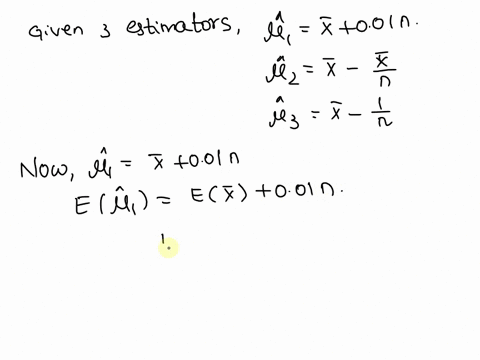 Given 3 estimators, μ̂₁ = x̄ + 0.01n
μ̂₂ = x̄ − x̄/n
μ̂₃ = x̄ − 1/n
Now, μ̂₁ = x̄ + 0.01n
E(μ̂₁) = E(x̄) + 0.01n.